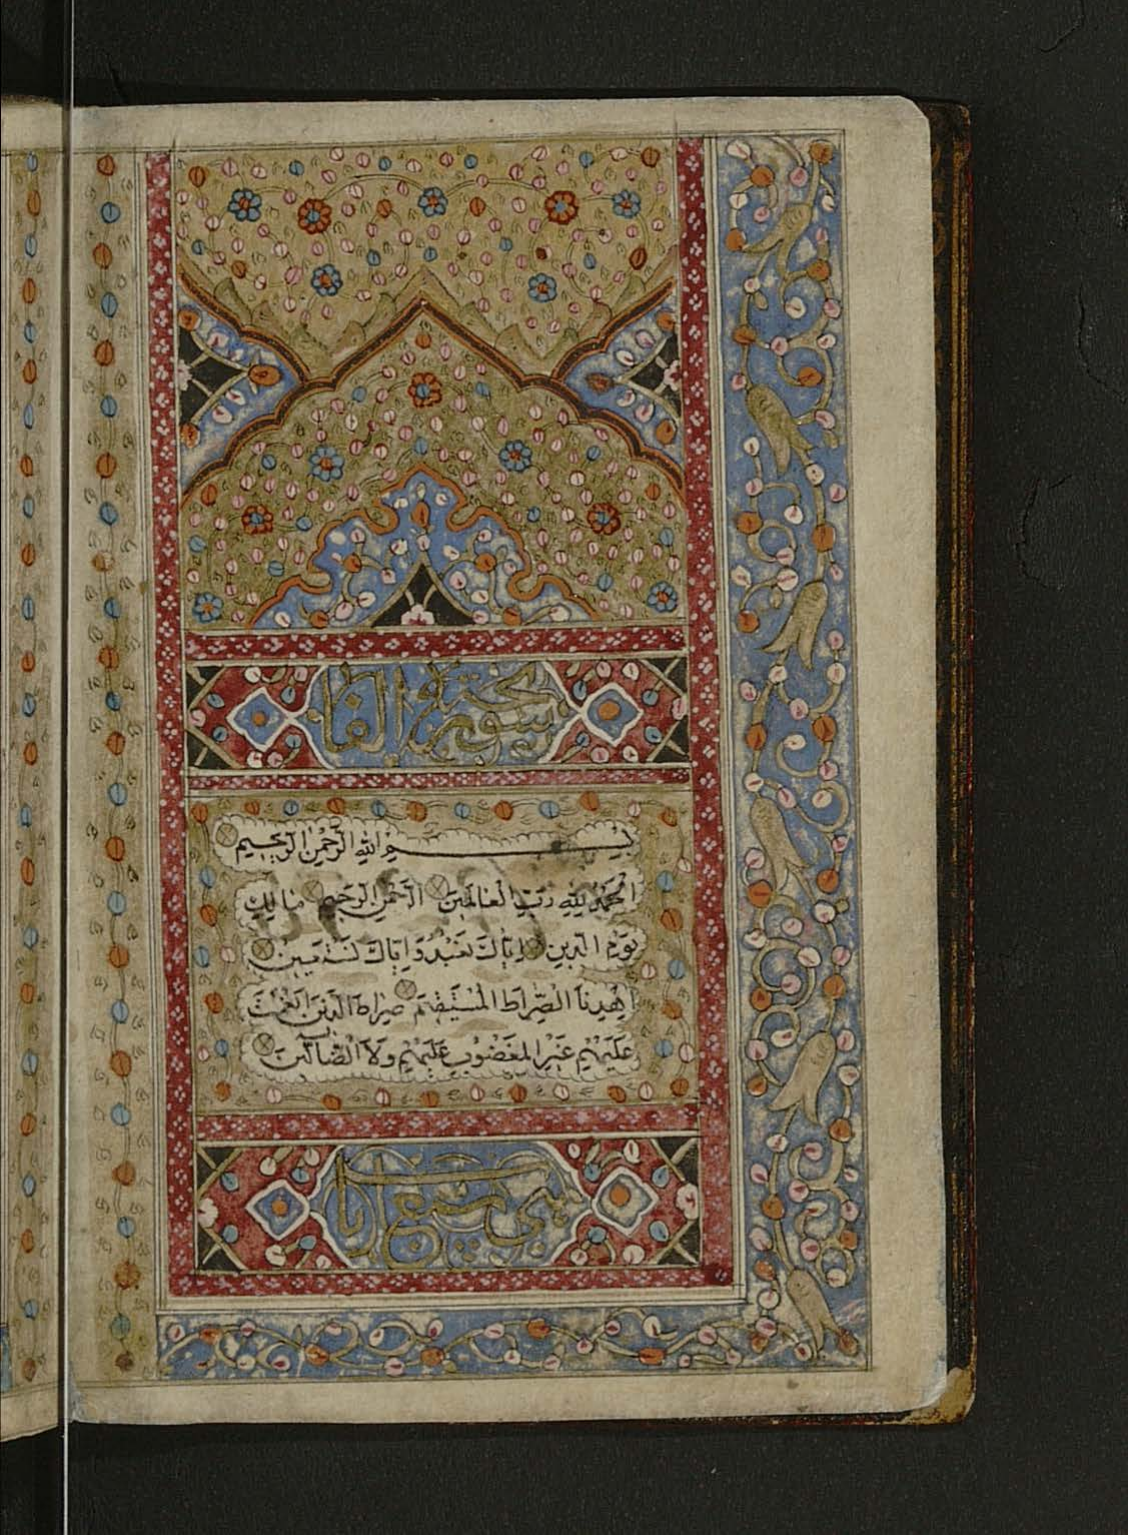 سورة الفاتحة
بسم الله الرحمن الرحيم
الْحَمْدُ لِلّٰهِ رَبِّ الْعَالَمِينَ الرَّحْمٰنِ الرَّحِيمِ مَالِكِ
يَوْمِ الدِّينِ اِيَّاكَ نَعْبُدُ وَاِيَّاكَ نَسْتَعِينُ
اِهْدِنَا الصِّرَاطَ الْمُسْتَقِيمَ صِرَاطَ الَّذِينَ اَنْعَمْتَ
عَلَيْهِمْ غَيْرِ الْمَغْضُوبِ عَلَيْهِمْ وَلَا الضَّالِّينَ